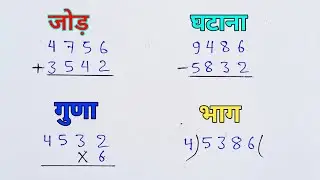 जोड़
4756
+3542
घटाना
9486
-5832
गुणा
4532
×6
भाग
4)5386(